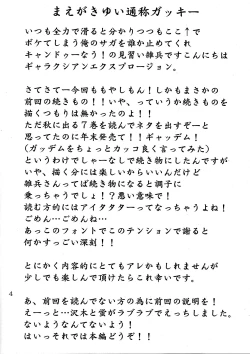 まえがきゆい通称ガッキー
いつも全力で滑ると分かりつつもここ↑で
ボケてしまう俺のサガを誰か止めてくれ
キャンドゥーなう！の見習い雑兵ですこんにちは
ギャラクシアンエクスプロージョン。
さてさて一今回ももやしもん！しかもまさかの
前回の続きもの！！いや、っていうか続きものを
描くつもりは無かったのよ！！
ただ秋に出る７巻を読んでネタを出すぞーと
思ってたのに年末発売て！！ギャッデム！
(ガッデムをちょっとカッコ良く言ってみた)
というわけでしゃーなしで続き物にしたんですが
いや、描く分には楽しからいいんだけど
雑兵さんってば続き物になると調子に
乗っちゃうでしょ！？悪い意味で！
読む方的にはアイタタターってなっちゃうよね！
ごめん…ごめんね…
あっこのフォントでこのテンションで謝ると
何かすっごい深刻！！
とにかく内容的にとてもアレかもしれませんが
少しでも楽しんで頂けたらこれ幸いです。
4
あ、前回を読んでない方の為に前回の説明を！
えーっと…沢木と蛍がラブラブでえっちしました。
ないようなんてないよう！
はいっそれでは本編どうぞ！！